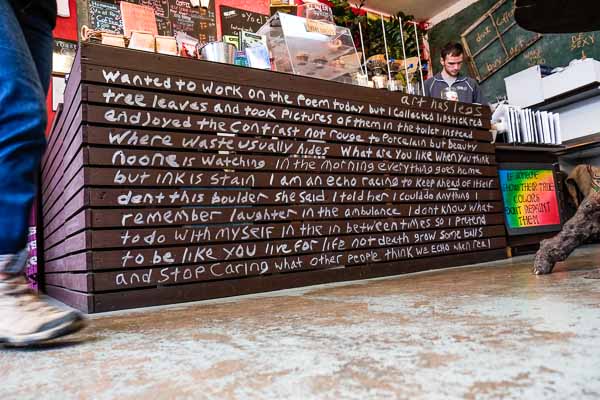 art has legs
wanted to work on the poem today but I collected lipstick red
tree leaves and took pictures of them in the toilet instead
endoyed the contrast not rouge to porcelain but beauty
where waste usually hides What are you like when you think
noone is watching in the morning everything goes home
but ink is stain I am an echo racing to keep ahead of itself
dent this boulder she said I told her I could do anything I
remember laughter in the ambulance I dont know what
to do with myself in the in between times so I pretend
to be like you live for life not death grow some balls
and stop caring what other people think we echo when real
IF SOMEONE
SHOWS THEIR TRUE
COLORS
DON'T REPAINT
THEM
SEXY